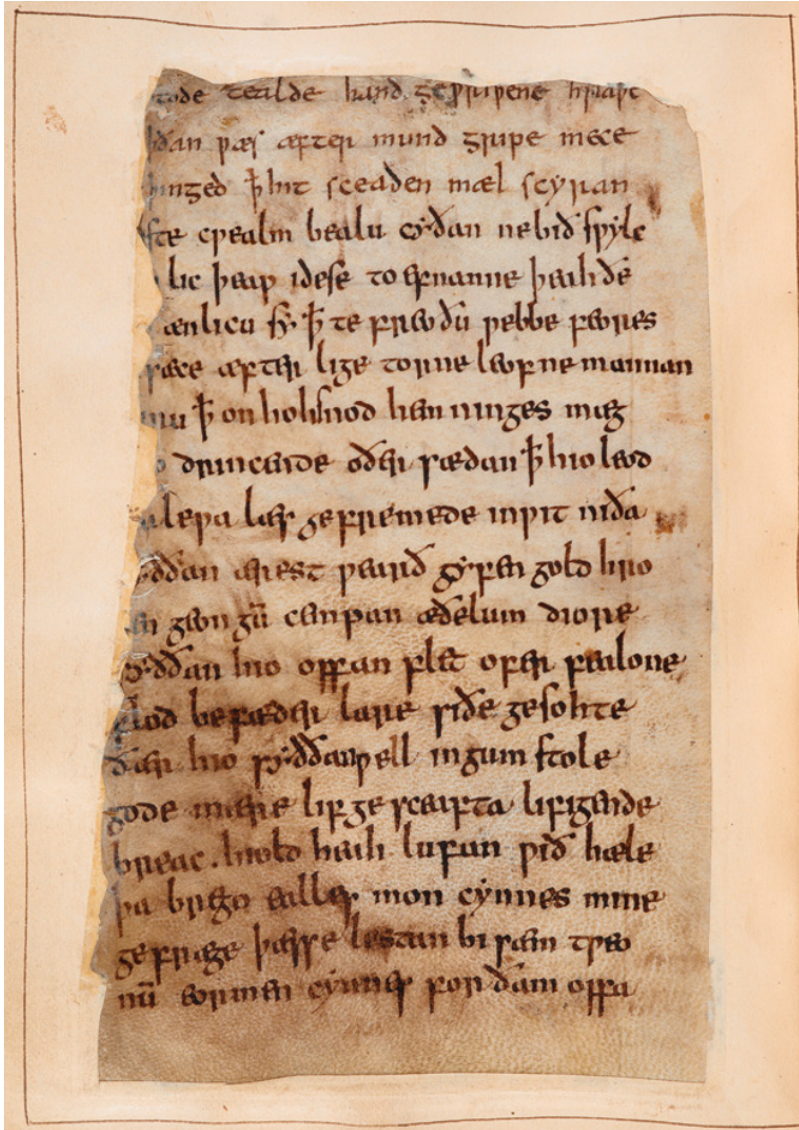 tode tealde hand geƿriþene hraþe
ðan ƿæs æfter mund gripe mece
þinged ꝥ hit sceaden mæl scyran
ste cƿealm bealu cyðan ne bið sƿylc
lic þeaƿ idese to efnanne þeah ðe
ænlicu sy ꝥ te freo ðu ƿebbe feores
sæce æfter lige torne leofne mannan
ru ꝥ on hohsnod hem ninges mæg
o drincende oðer sædan ꝥ hio leod
aleƿa læs gefremede inƿit niða
yððan ærest ƿearð gyfen gold hro
en geon gū cempan æðelum diore
syððan hio offan flet ofer fealone
flod be fæder lare siðe gesohte
ðær hio syððan ƿell in gum stole
gode mære lif gesceafta lifigende
breac. hiold heah lufan ƿið hæle
þa brego ealles mon cynnes mine
gefræge þæs se lestan bi sæm tƿeo
nū eormen cynnes for ðam offa